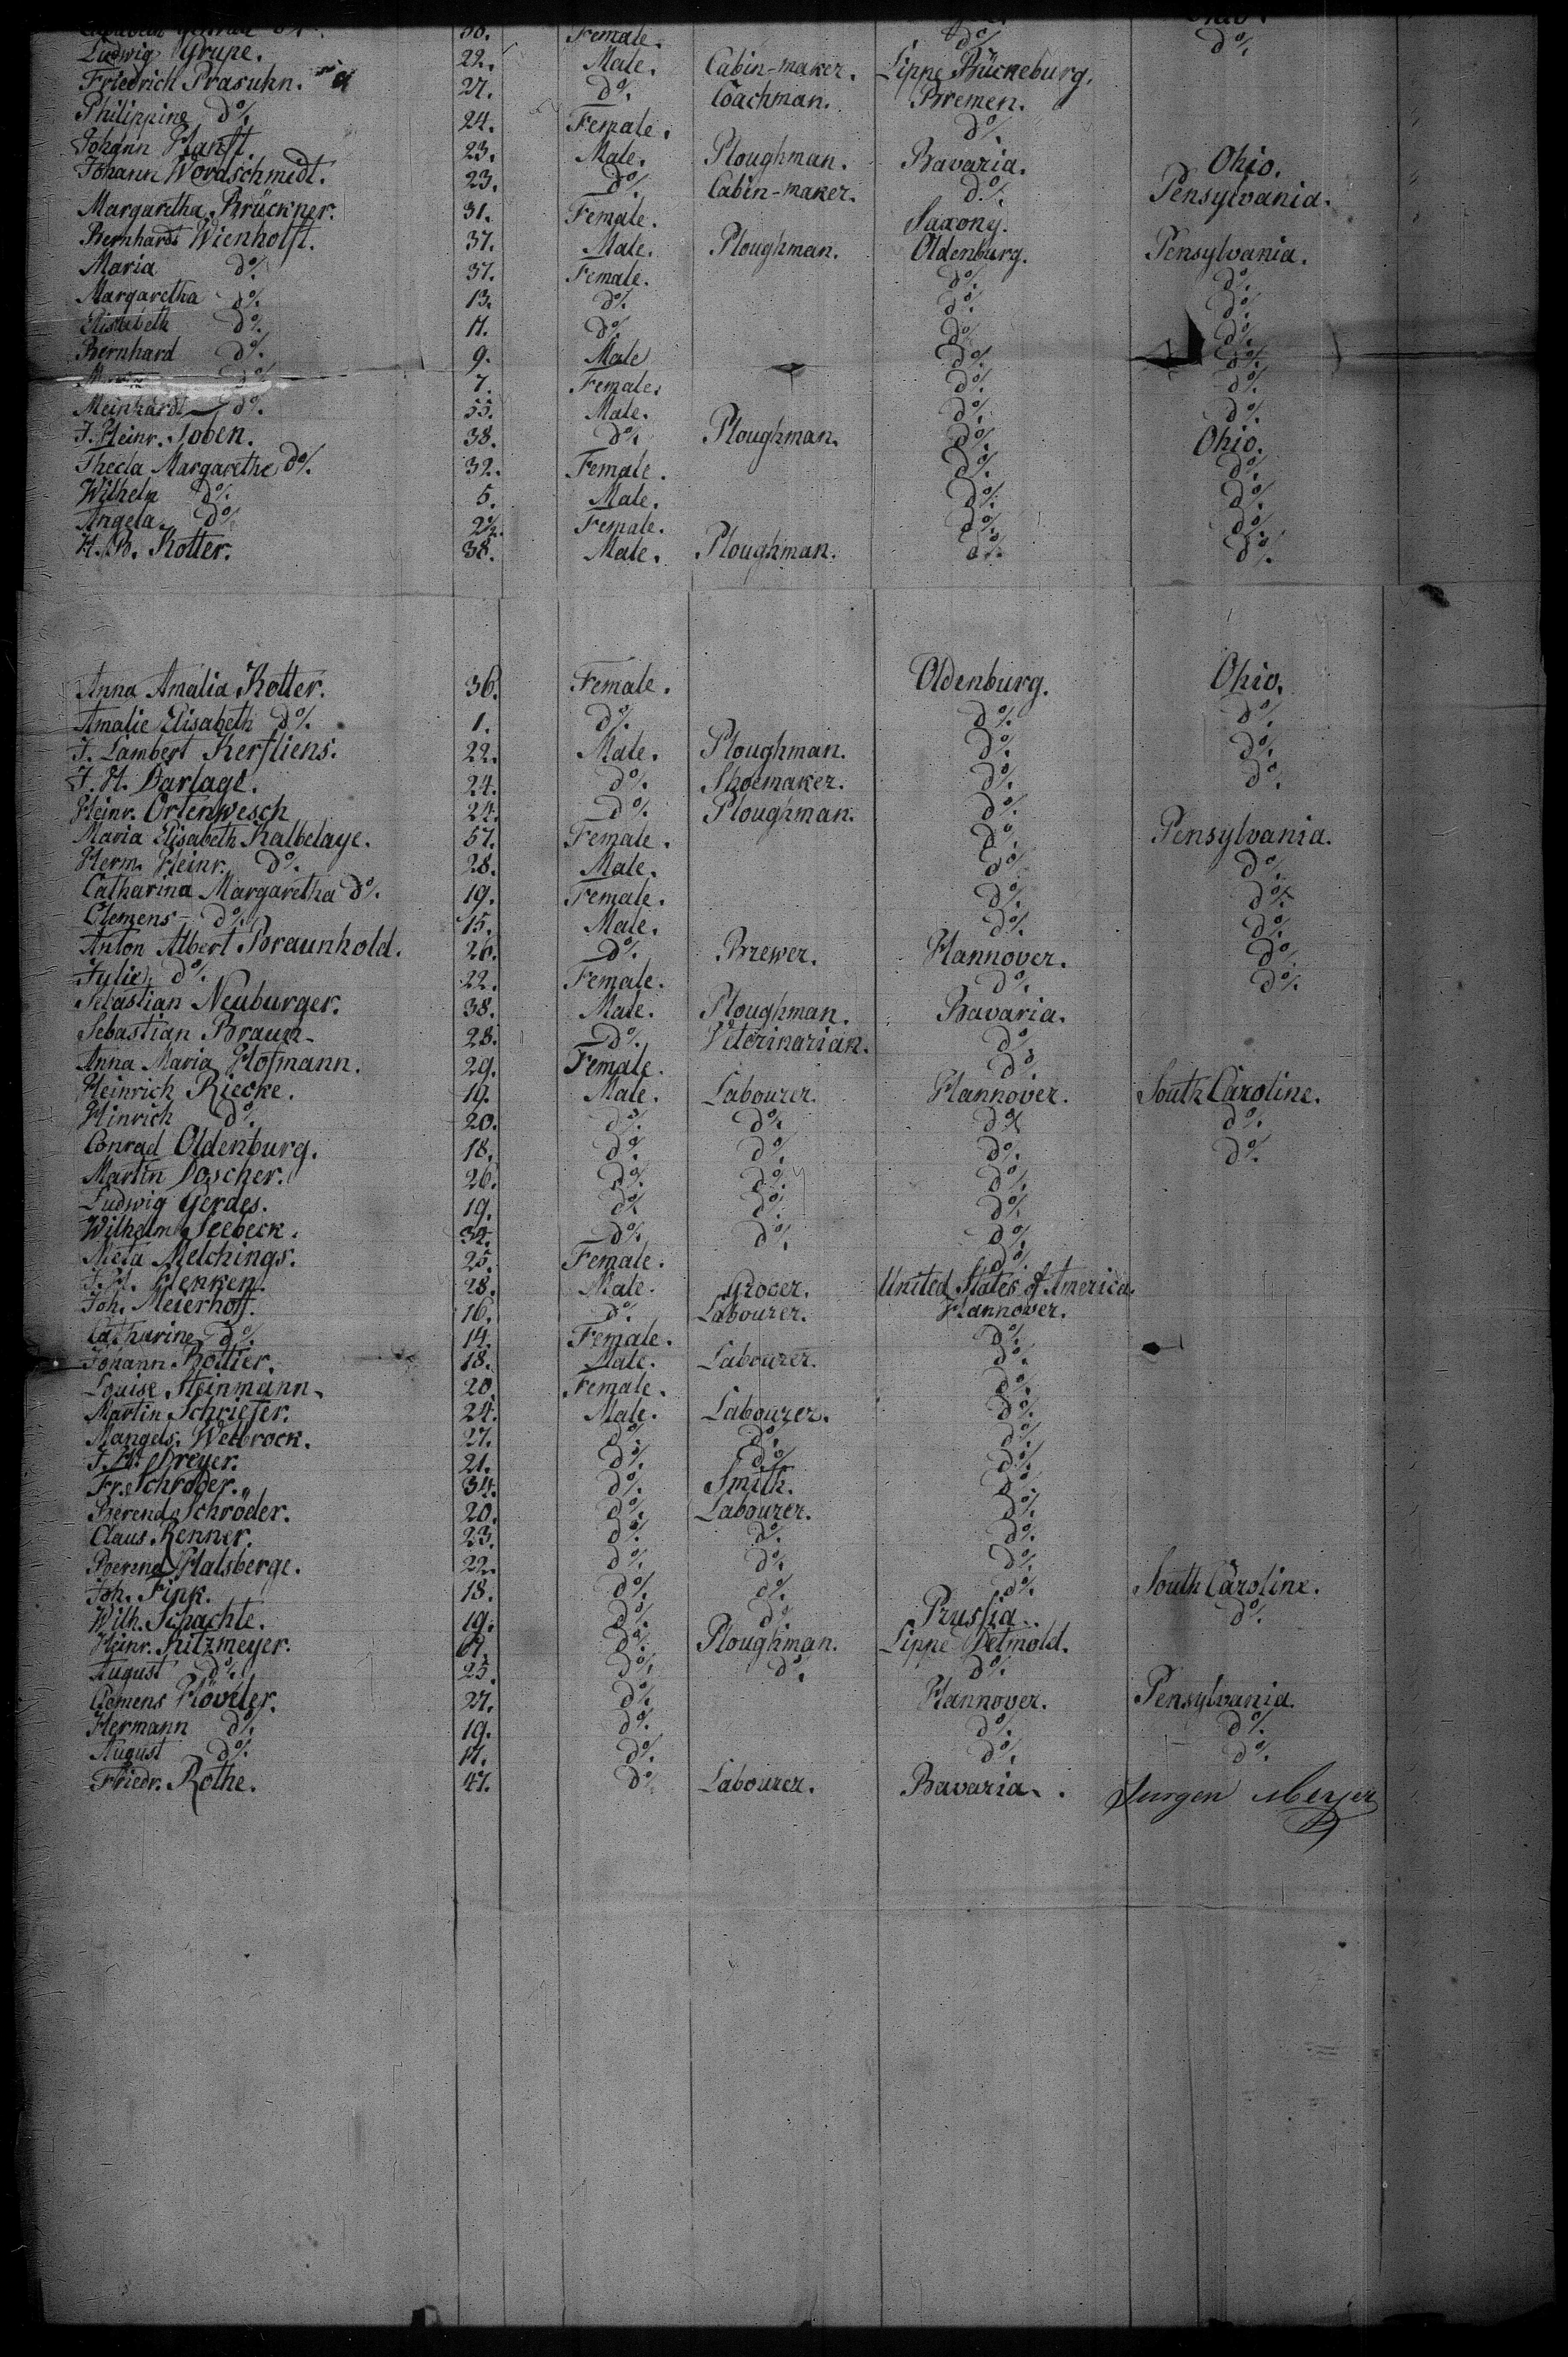 38. Female. d% d%
Ludwig Grupe. 22. Male. Cabin-maker. Lippe Bückeburg.
Friedrich Prasuhn. 27. d% Coachman. Bremen.
Philippine d% 24. Female. d%
Johann Hanft. 23. Male. Ploughman. Bavaria. Ohio.
Johann Wordschmidt. 23. d% Cabin-maker. d% Pensylvania.
Margaretha Brückner. 31. Female. Saxony.
Bernhardt Wienholft. 37. Male. Ploughman. Oldenburg. Pensylvania.
Maria d% 37. Female. d% d%
Margaretha d% 13. d% d% d%
Elisabeth d% 11. d% d% d%
Bernhard d% 9. Male d% d%
Maria d% 7. Female. d% d%
Meinhardt d% 55. Male. d% d%
J. Heinr. Toben. 38. d% Ploughman. d% Ohio.
Thecla Margarethe d% 32. Female. d% d%
Wilhelm d% 5. Male. d% d%
Angela d% 2½. Female. d% d%
H. B. Kotter. 38. Male. Ploughman. d% d%
Anna Amalia Kotter. 36. Female. Oldenburg. Ohio.
Amalie Elisabeth d% 1. d% d% d%
J. Lambert Kerstiens. 22. Male. Ploughman. d% d%
J. H. Darlage. 24. d% Shoemaker. d% d%
Heinr. Ortenwesch 24. d% Ploughman. d%
Maria Elisabeth Kalbelage. 57. Female. d% Pensylvania.
Herm. Heinr. d% 28. Male. d% d%
Catharina Margaretha d% 19. Female. d% d%
Clemens d% 15. Male. d% d%
Anton Albert Braunhold. 26. d% Brewer. Hannover. d%
Julie d% 22. Female. d% d%
Sebastian Neuburger. 38. Male. Ploughman. Bavaria.
Sebastian Braun 28. d% Veterinarian. d%
Anna Maria Hofmann. 29. Female. d%
Heinrich Riecke. 19. Male. Labourer. Hannover. South Caroline.
Hinrich d% 20. d% d% d% d%
Conrad Oldenburg. 18. d% d% d% d%
Martin Doscher. 26. d% d% d%
Ludwig Gerdes. 19. d% d% d%
Wilhelm Seebeck. 34. d% d% d%
Meta Melchings. 25. Female. d%
J. H. Henken. 28. Male. Grocer. United States of America.
Joh. Meierhoff. 16. d% Labourer. Hannover.
Catharine d% 14. Female. d%
Johann Rottier. 18. Male. Labourer. d%
Louise Steinmann. 20. Female. d%
Martin Schriefer. 24. Male. Labourer. d%
Mangels Wetbrock. 27. d% d% d%
J. H. Dreyer. 21. d% d% d%
Fr. Schroder. 34. d% Smith. d%
Berend Schröder. 20. d% Labourer. d%
Claus Renner. 23. d% d% d%
Berend Halsberge. 22. d% d% d%
Joh. Fink. 18. d% d% d% South Caroline.
Wilh. Schachte. 19. d% d% Prussia. d%
Heinr. Kitzmeyer. d% Ploughman. Lippe Detmold.
August d% 25. d% d% d%
Clemens Höveler. 27. d% Hannover. Pensylvania.
Hermann d% 19. d% d% d%
August d% 17. d% d% d%
Friedr. Rothe. 47. d% Labourer. Bavaria.
Jurgen Meyer